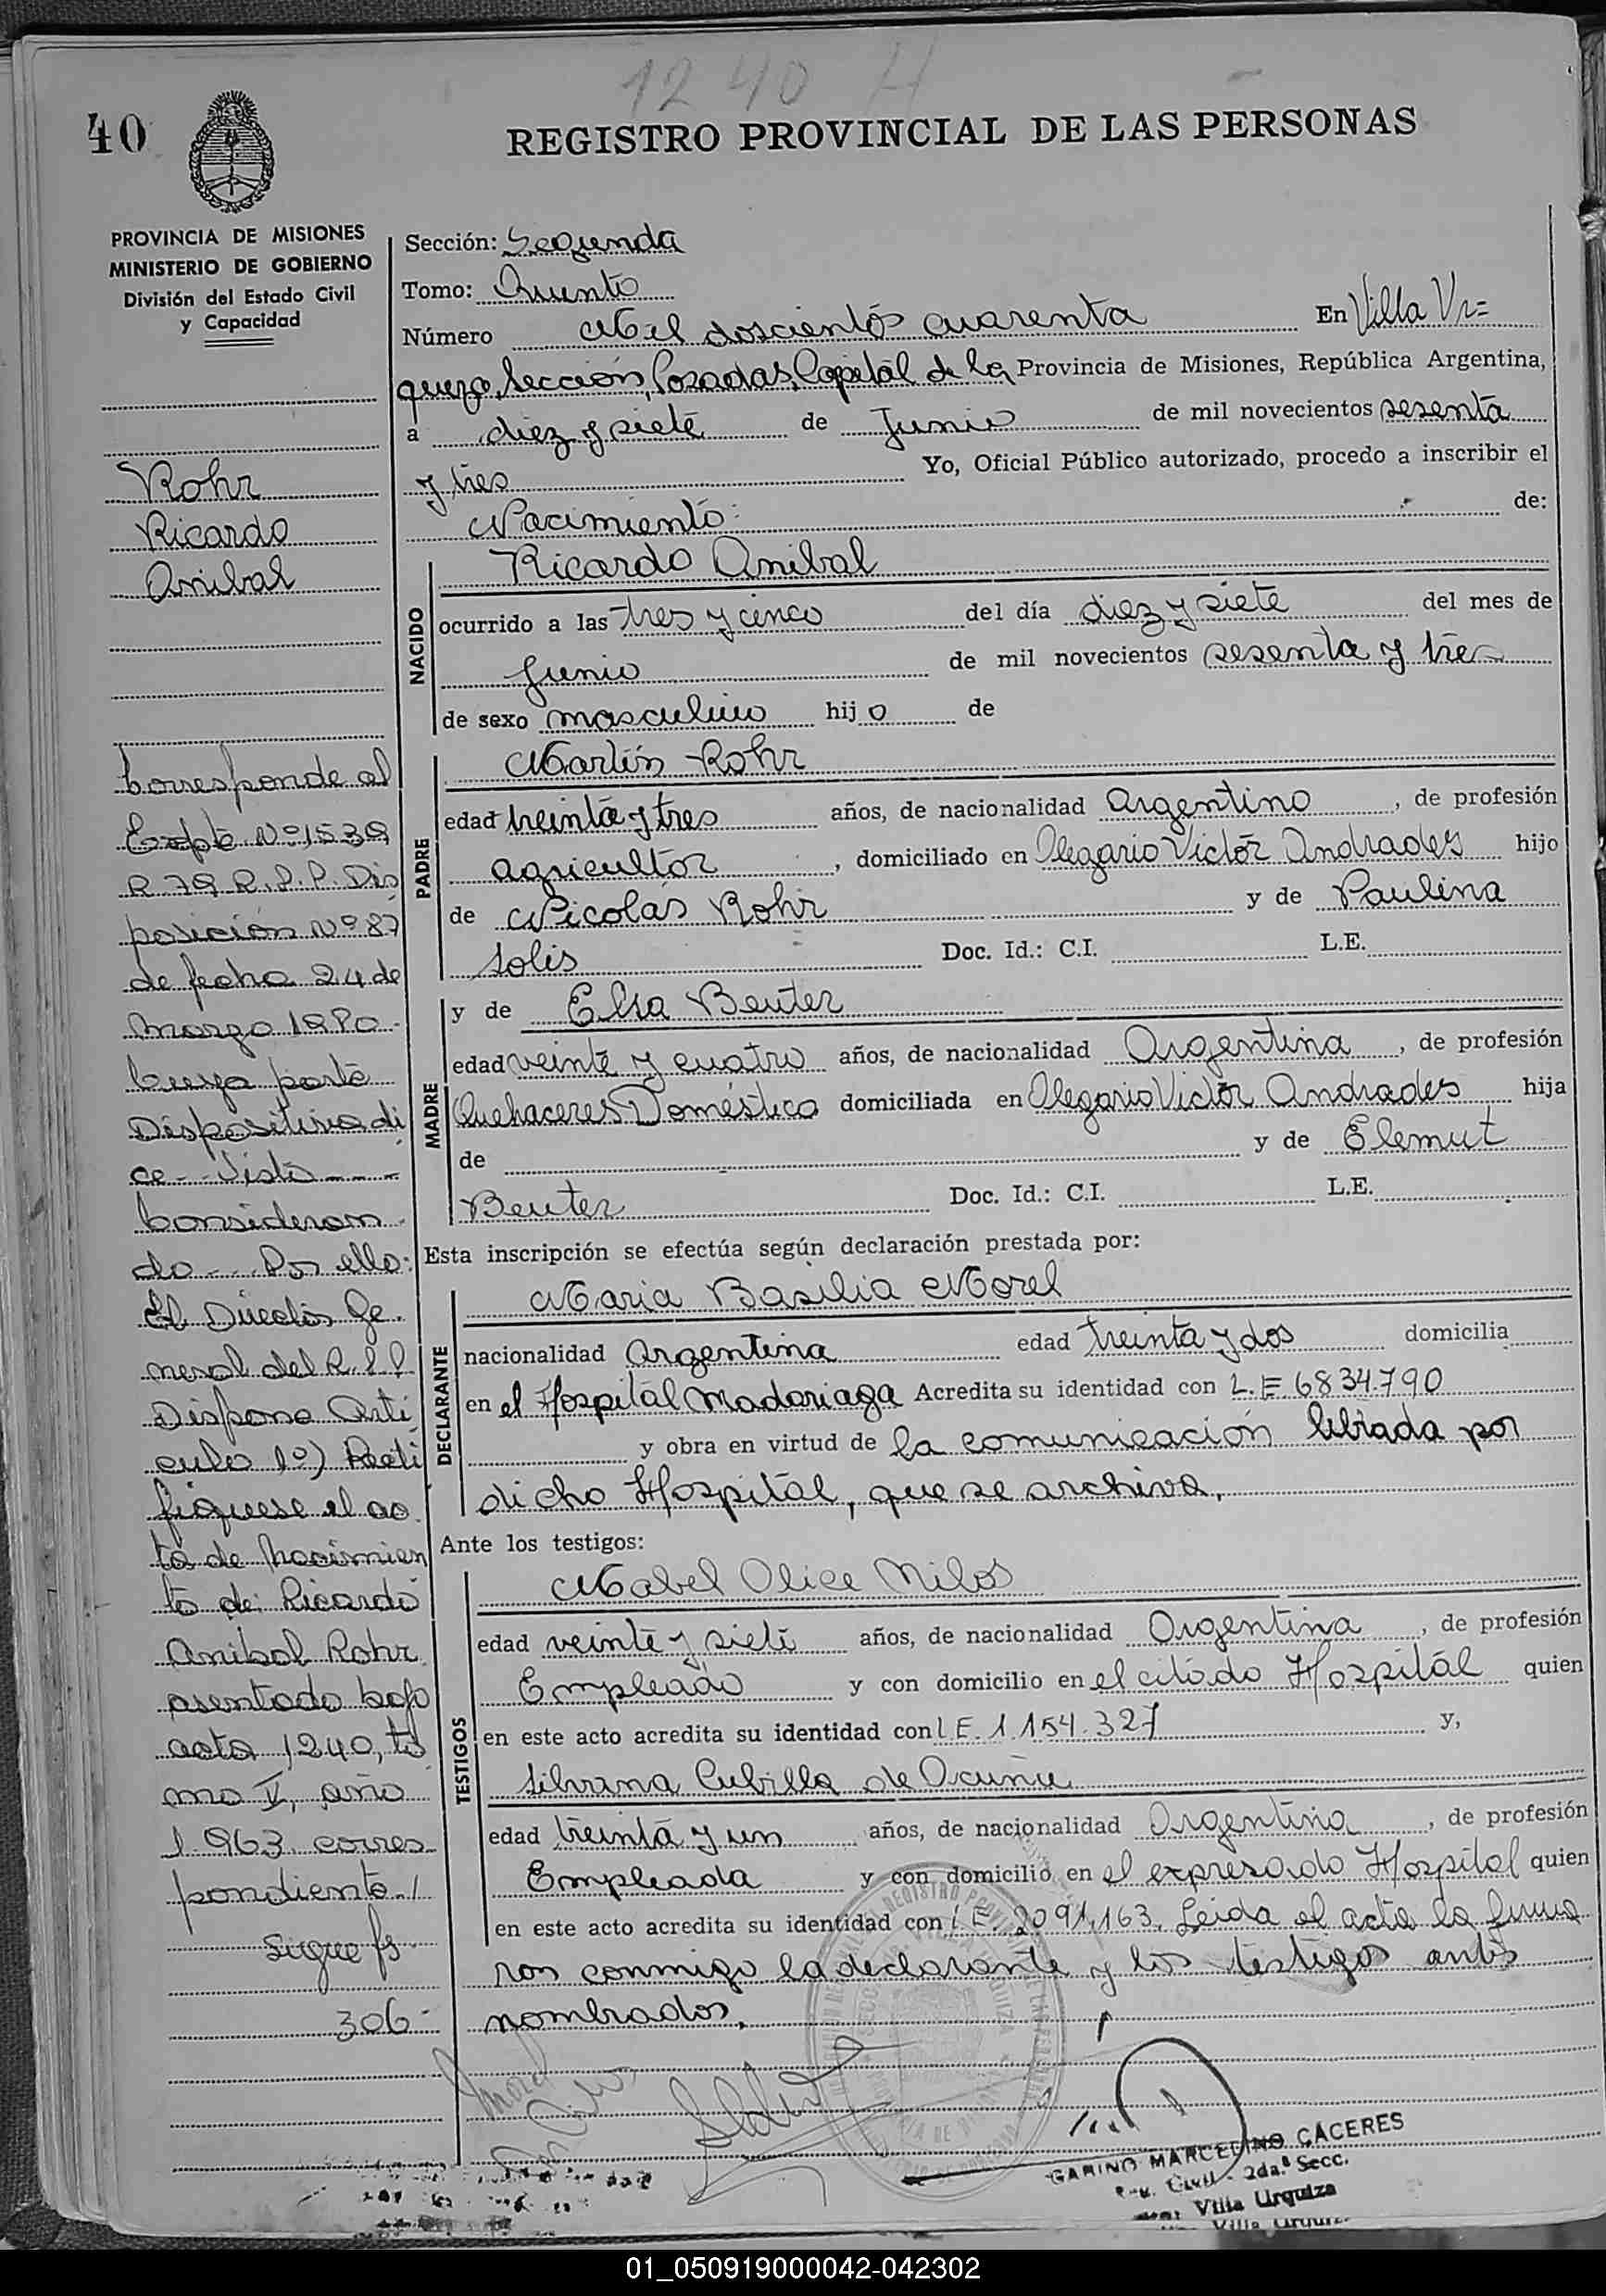 1240 H
40
REGISTRO PROVINCIAL DE LAS PERSONAS
PROVINCIA DE MISIONES
MINISTERIO DE GOBIERNO
División del Estado Civil
y Capacidad
Rohr
Ricardo
Anibal
Corresponde al
Expte Nº 1539
R 79 R.P.P. Dis
posición Nº 87
de fecha 24 de
Marzo 1980
Cuya parte
Dispositiva di
ce - Visto
Consideran
do - Por ello:
El Director Ge
neral del R.P.P
Dispone Arti
culo 1º) Recti
fiquese el ac
ta de Nacimien
to de: Ricardo
Anibal Rohr
asentado bajo
acta 1240, to
mo V, año
1.963 corres
pondiente /
Sigue fs
306
Sección: Segunda
Tomo: Quinto
Número Mil doscientos cuarenta En Villa Ur=
quiza, Sección, Posadas, Capital de la Provincia de Misiones, República Argentina,
a diez y siete de Junio de mil novecientos sesenta
y tres Yo, Oficial Público autorizado, procedo a inscribir el
Nacimiento: de:
NACIDO
Ricardo Anibal
ocurrido a las tres y cinco del día diez y siete del mes de
Junio de mil novecientos sesenta y tres
de sexo masculino hijo de
PADRE
Martín Rohr
edad treinta y tres años, de nacionalidad Argentino, de profesión
agricultor, domiciliado en Olegario Victor Andrades hijo
de Nicolás Rohr y de Paulina
Solis Doc. Id.: C.I. L.E.
MADRE
y de Elsa Beuter
edad veinte y cuatro años, de nacionalidad Argentina, de profesión
Quehaceres Doméstico domiciliada en Olegario Victor Andrades hija
de y de Elemut
Beuter Doc. Id.: C.I. L.E.
Esta inscripción se efectúa según declaración prestada por:
DECLARANTE
Maria Basilia Morel
nacionalidad Argentina edad treinta y dos domicilia
en el Hospital Madariaga Acredita su identidad con L.E. 6834.790
y obra en virtud de la comunicación librada por
dicho Hospital, que se archiva,
Ante los testigos:
TESTIGOS
Mabel Olice Milos
edad veinte y siete años, de nacionalidad Argentina, de profesión
Empleado y con domicilio en el citado Hospital quien
en este acto acredita su identidad con L.E. 1.154.327 y,
Silvana Cubilla de Ocuña
edad treinta y un años, de nacionalidad Argentina, de profesión
Empleada y con domicilio en el expresado Hospital quien
en este acto acredita su identidad con L.E. 2091,163. Leida el acta la firma
ron conmigo la declarante y los testigos antes
nombrados,
GABINO MARCELINO CACERES
Civil - 2da. Secc.
Villa Urquiza
01_050919000042-042302